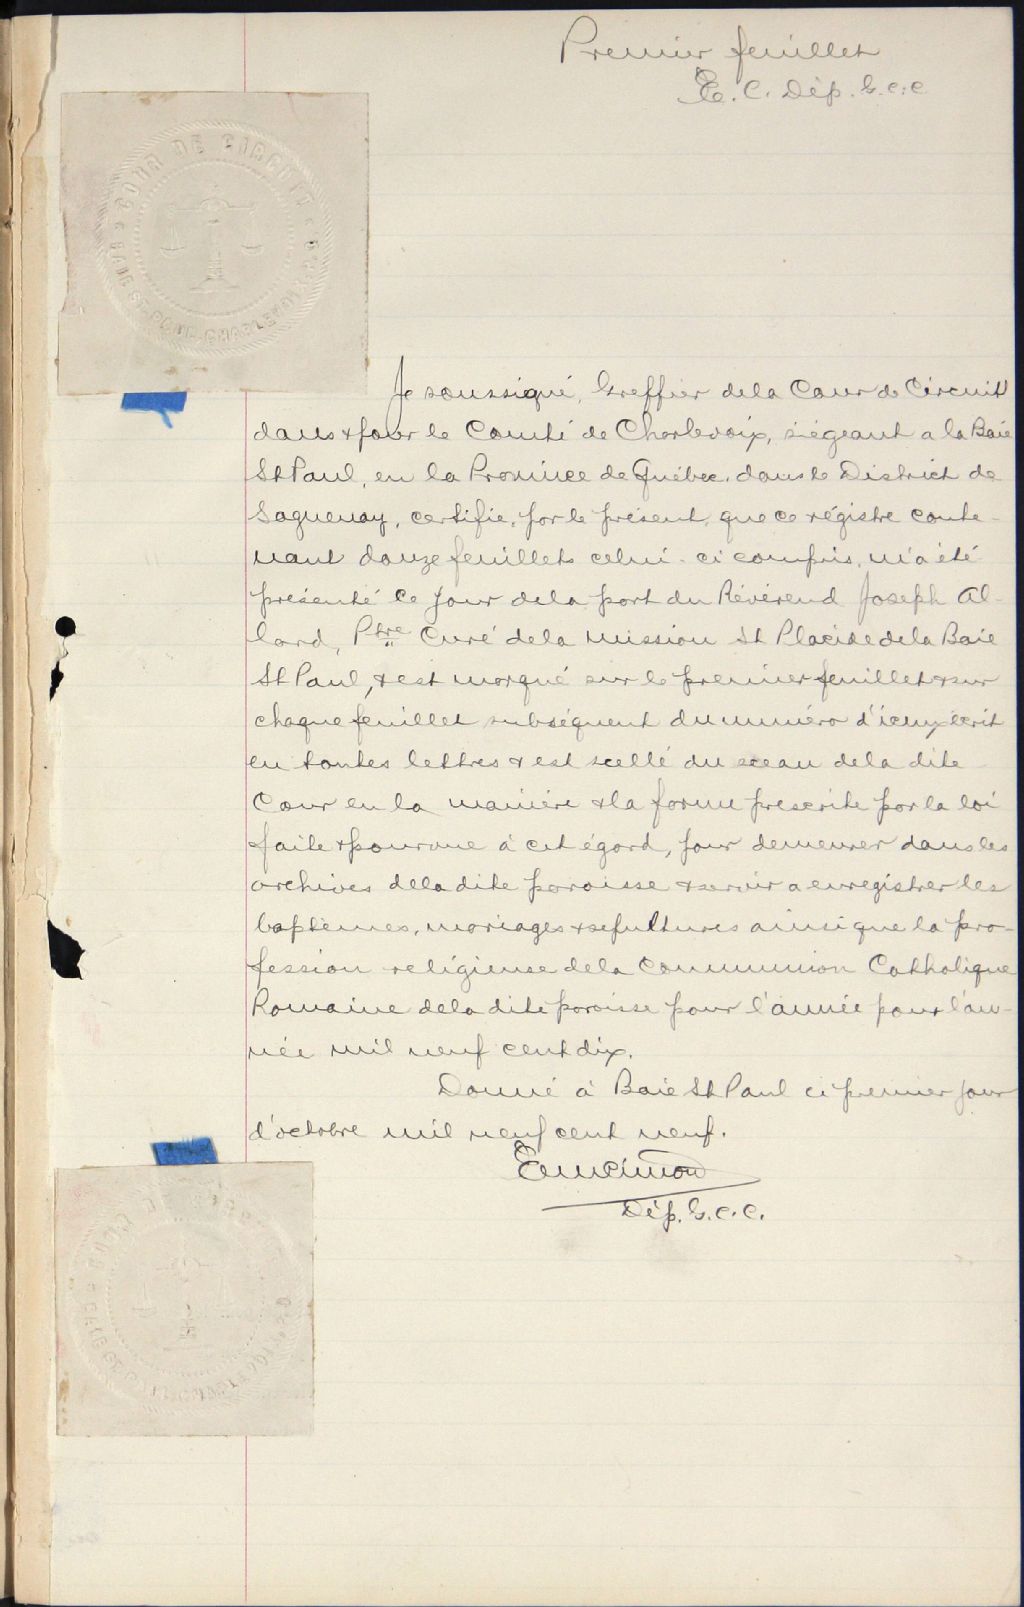 Premier feuillet
E. C. Dép. G. C. C.
COUR DE CIRCUIT
BAIE ST. PAUL CHARLEVOIX
Je soussigné, Greffier de la Cour de Circuit
dans & pour le Comté de Charlevoix, siégeant a la Baie
St Paul, en la Province de Québec, dans le District de
Saguenay, certifie, par le présent, que ce régistre conte-
nant douze feuillets celui-ci compris, m'a été
présenté ce jour de la part du Révérend Joseph Al-
lard, Ptre Curé de la mission St Placide de la Baie
St Paul, & est marqué sur le premier feuillet & sur
chaque feuillet subséquent du numéro d'iceux écrit
en toutes lettres & est scellé du sceau de la dite
Cour en la manière & la forme prescrite par la loi
faite & pourvue à cet égard, pour demeurer dans les
archives de la dite paroisse & servir a enregistrer les
baptêmes, mariages & sepultures ainsi que la pro-
fession religieuse de la Communion Catholique
Romaine de la dite paroisse pour l'année pour l'an-
née mil neuf cent dix.
Donné à Baie St Paul ce premier jour
d'octobre mil neuf cent neuf.
Dép. G. C. C.